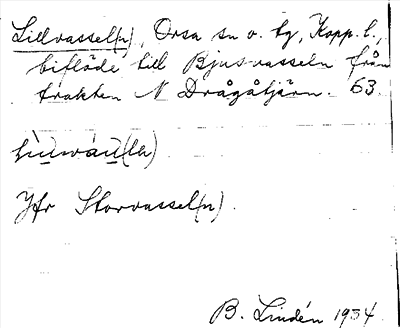 Lillvassel(n), Orsa sn o. tg, Kopp. l.,
biflöde till Bjusvasseln från
trakten N Drågåtjärn. 63.
Jfr Storvassel(n).
B. Lindén 1934.